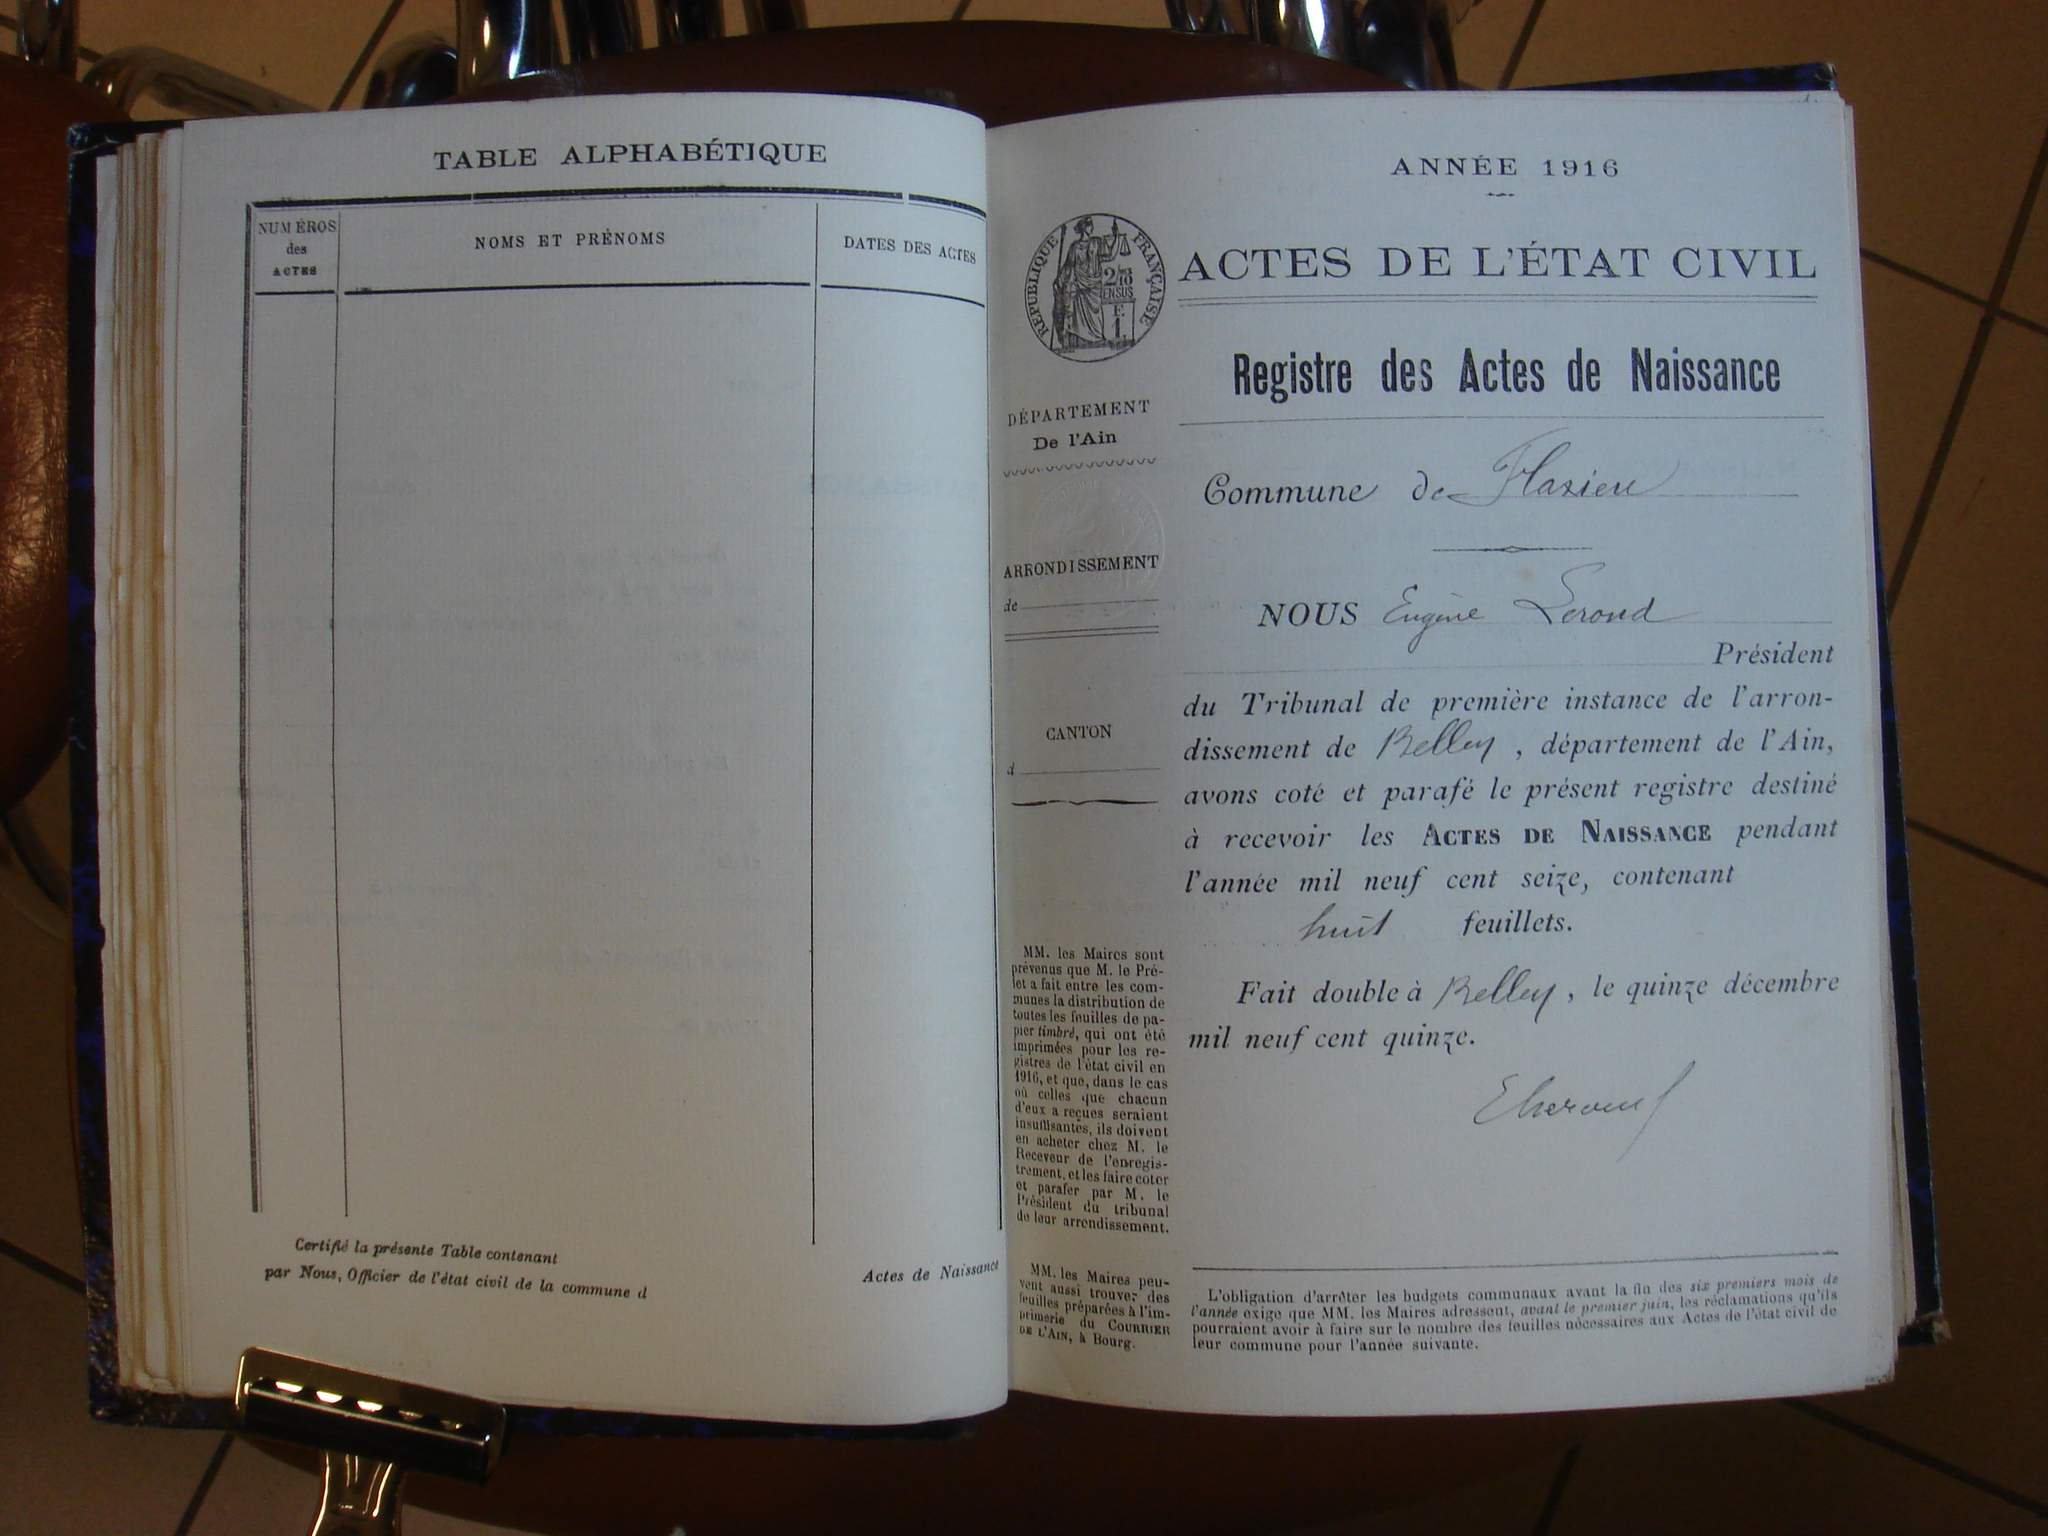 TABLE ALPHABÉTIQUE
NUMÉROS
des
ACTES
NOMS ET PRÉNOMS
DATES DES ACTES
Certifié la présente Table contenant
par Nous, Officier de l'état civil de la commune d
Actes de Naissance
ANNÉE 1916
RÉPUBLIQUE FRANÇAISE
ACTES DE L'ÉTAT CIVIL
Registre des Actes de Naissance
DÉPARTEMENT
De l'Ain
Commune de Flaxieu
ARRONDISSEMENT
de
NOUS Eugène Lerond
Président
du Tribunal de première instance de l'arron-
dissement de Belley, département de l'Ain,
avons coté et parafé le présent registre destiné
à recevoir les ACTES DE NAISSANCE pendant
l'année mil neuf cent seize, contenant
huit feuillets.
Fait double à Belley, le quinze décembre
mil neuf cent quinze.
CANTON
d
MM. les Maires sont
prévenus que M. le Pré-
fet a fait entre les com-
munes la distribution de
toutes les feuilles de pa-
pier timbré, qui ont été
imprimées pour les re-
gistres de l'état civil en
1916, et que, dans le cas
où celles que chacun
d'eux a reçues seraient
insuffisantes, ils doivent
en acheter chez M. le
Receveur de l'enregis-
trement, et les faire coter
et parafer par M. le
Président du tribunal
de leur arrondissement.
MM. les Maires peu-
vent aussi trouver des
feuilles préparées à l'im-
primerie du COURRIER
DE L'AIN, à Bourg.
L'obligation d'arrêter les budgets communaux avant la fin des six premiers mois de
l'année exige que MM. les Maires adressent, avant le premier juin, les réclamations qu'ils
pourraient avoir à faire sur le nombre des feuilles nécessaires aux Actes de l'état civil de
leur commune pour l'année suivante.